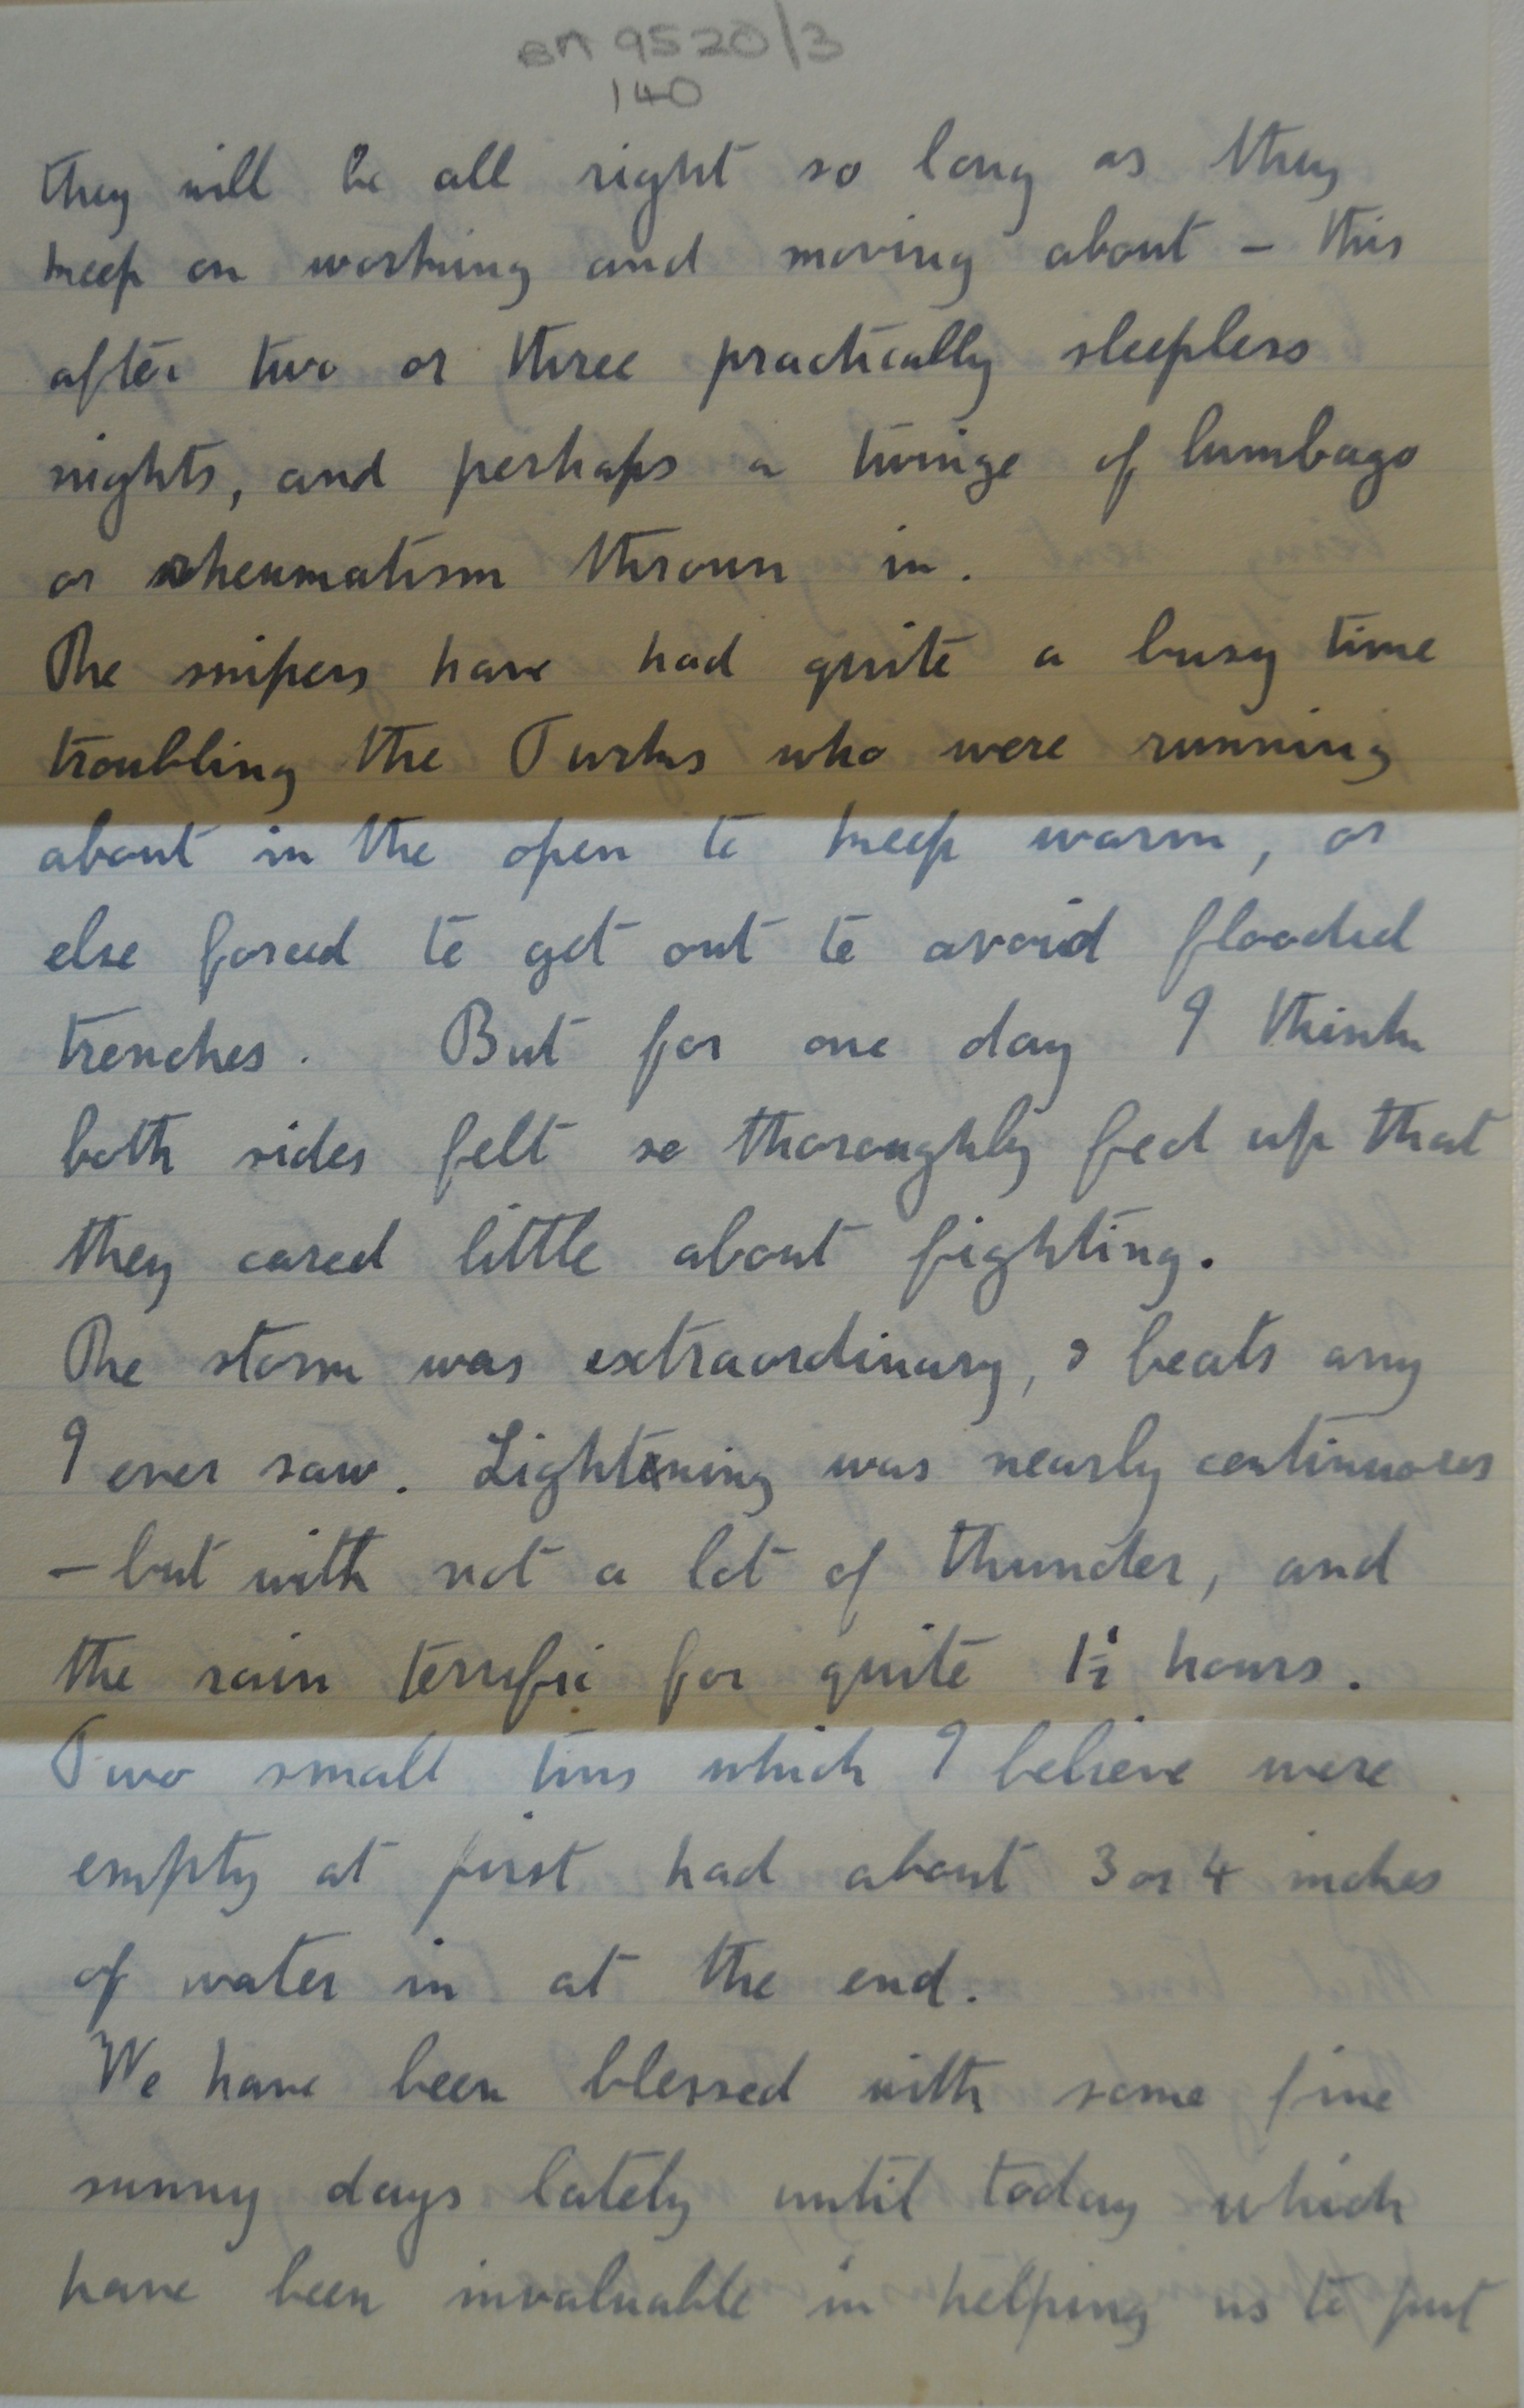 BM 9520/3
140
they will be all right so long as they
keep on working and moving about – this
after two or three practically sleepless
nights, and perhaps a twinge of lumbago
or rheumatism thrown in.
The snipers have had quite a busy time
troubling the Turks who were running
about in the open to keep warm, or
else forced to get out to avoid flooded
trenches. But for one day I think
both sides felt so thoroughly fed up that
they cared little about fighting.
The storm was extraordinary, & beats any
I ever saw. Lightning was nearly continuous
– but with not a lot of thunder, and
the rain terrific for quite 1½ hours.
Two small tins which I believe were
empty at first had about 3 or 4 inches
of water in at the end.
We have been blessed with some fine
sunny days lately until today which
have been invaluable in helping us to put